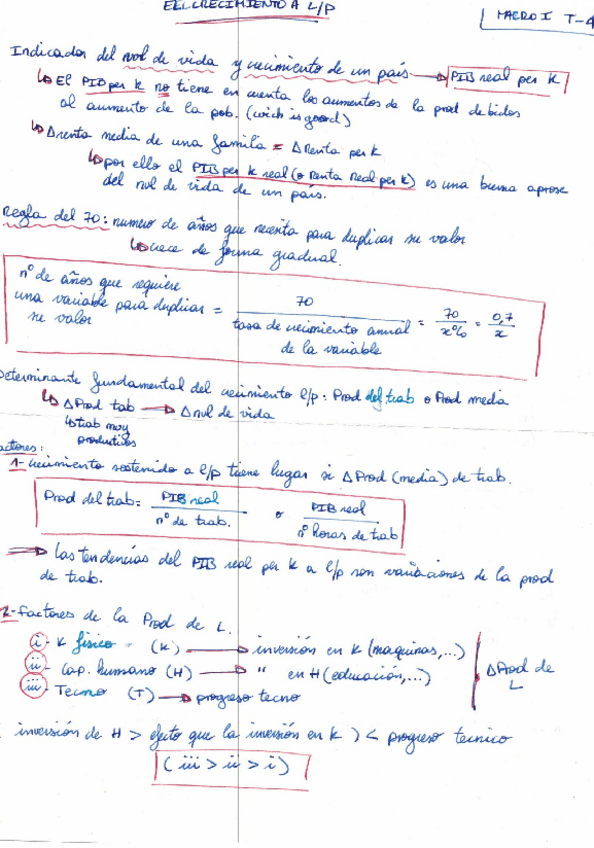 EL CRECIMIENTO A L/P
MACRO I T-4
Indicador del nvl de vida y crecimiento de un país → PIB real per K
↳ El PIB per K no tiene en cuenta los aumentos de la prod debidos
al aumento de la pob. (wich is good)
↳ Δ renta media de una familia = Δ renta per K
↳ por ello el PIB per K real (o Renta Real per K) es una buena aprox
del nvl de vida de un país.
Regla del 70: numero de años que necesita para duplicar su valor
↳ crece de forma gradual.
nº de años que requiere
una variable para duplicar = 70 / tasa de crecimiento anual de la variable = 70 / x% = 0,7 / x
su valor
Determinante fundamental del crecimiento l/p: Prod del trab o Prod media
↳ Δ Prod tab → Δ nvl de vida
↳ trab muy
productivos
actores:
1- crecimiento sostenido a l/p tiene lugar si Δ Prod (media) de trab.
Prod del trab = PIB real / nº de trab. o PIB real / nº horas de trab
⇒ las tendencias del PIB real per K a l/p son variaciones de la prod
de trab.
2- factores de la Prod de L.
i - K físico - (K) → inversión en K (maquinas,...)
ii - Cap. humano (H) → " en H (educación,...)
iii - Tecno (T) → progreso tecno
Δ Prod de
L
inversión de H > efecto que la inversión en K ) < progreso tecnico
( iii > ii > i )